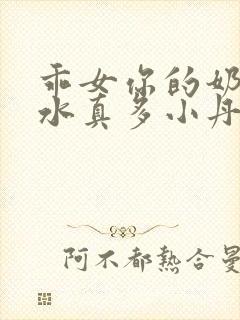 乖女你的奶
水真多小丹
阿不都熱合曼